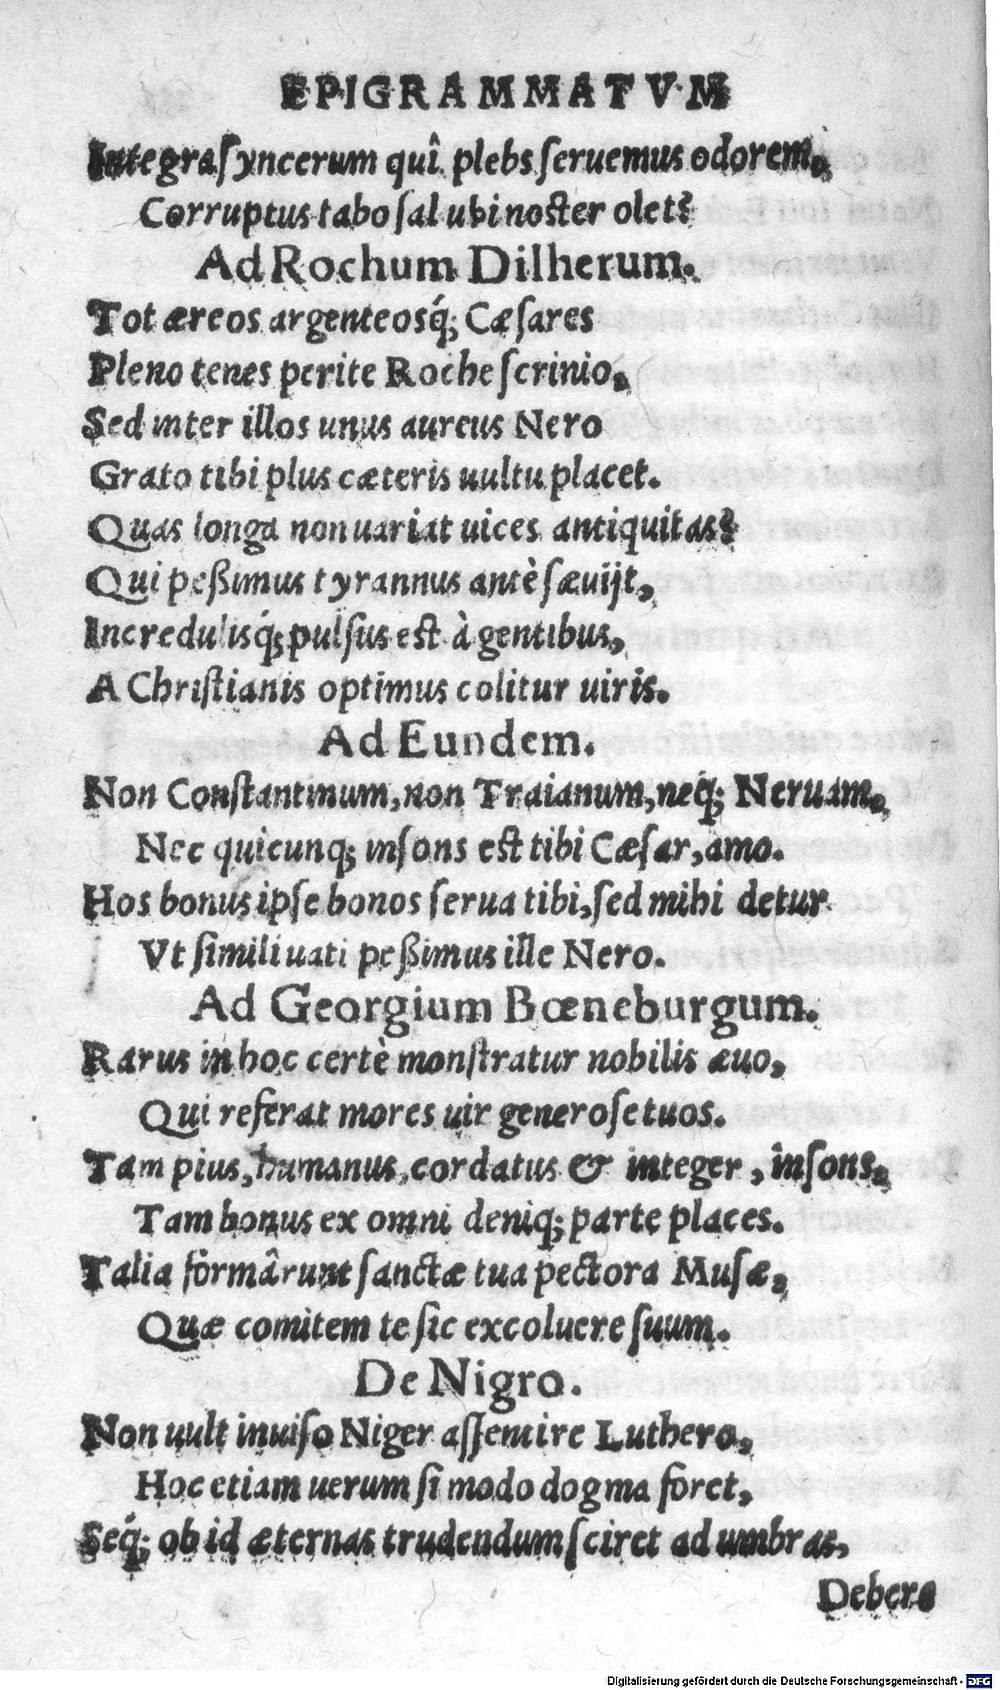 EPIGRAMMATVM
Integra ſyncerum quî plebs ſeruemus odorem,
Corruptus tabo ſal ubi noſter olet?
Ad Rochum Dilherum.
Tot æreos argenteosq́; Cæſares
Pleno tenes perite Roche ſcrinio,
Sed inter illos unus aureus Nero
Grato tibi plus cæteris uultu placet.
Quas longa non uariat uices antiquitas?
Qui peßimus tyrannus antè ſæuijt,
Incredulisq́; pulſus eſt à gentibus,
A Chriſtianis optimus colitur uiris.
Ad Eundem.
Non Conſtantinum, non Traianum, neq́; Neruam,
Nec quicunq; inſons eſt tibi Cæſar, amo.
Hos bonus ipſe bonos ſerua tibi, ſed mihi detur
Vt ſimili uati peßimus ille Nero.
Ad Georgium Bœneburgum.
Rarus in hoc certè monſtratur nobilis æuo,
Qui referat mores uir generoſe tuos.
Tam pius, humanus, cordatus & integer, inſons,
Tam bonus ex omni deniq; parte places.
Talia formârunt ſanctæ tua pectora Muſæ,
Quæ comitem te ſic excoluere ſuum.
De Nigro.
Non uult inuiſo Niger aſſentire Luthero,
Hoc etiam uerum ſi modo dogma foret,
Seq́; ob id æternas trudendum ſciret ad umbras,
Debere
Digitalisierung gefördert durch die Deutsche Forschungsgemeinschaft - DFG